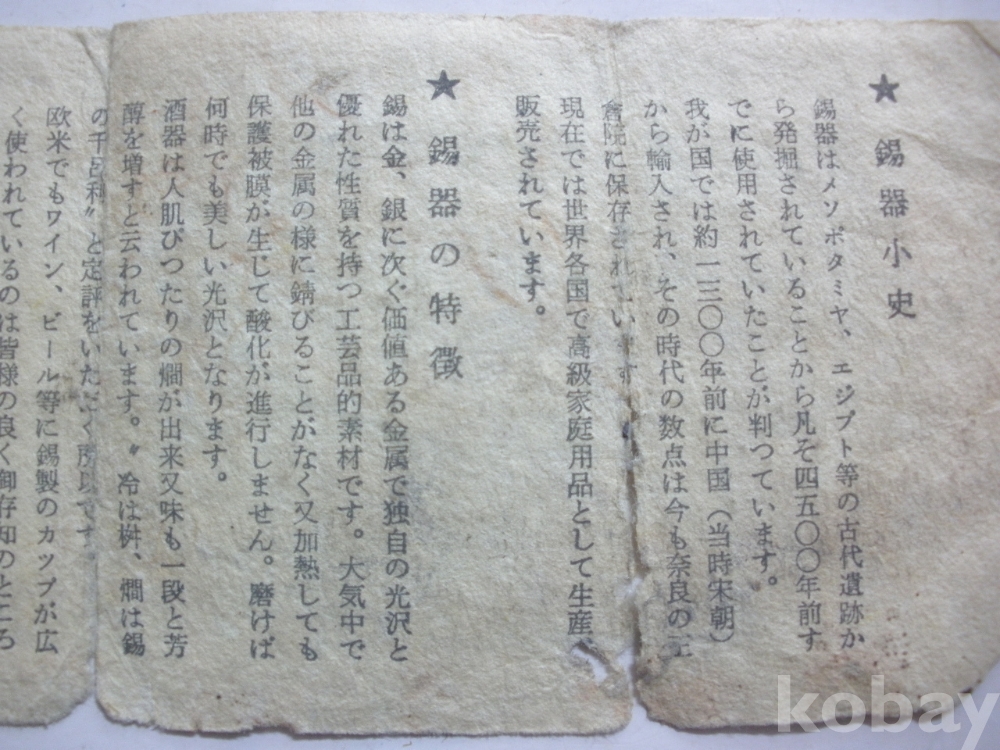 ★ 錫器小史
錫器はメソポタミヤ、エジプト等の古代遺跡か
ら発掘されていることから凡そ四五〇〇年前す
でに使用されていたことが判つています。
我が国では約一三〇〇年前に中国（当時宋朝）
から輸入され、その時代の数点は今も奈良の正
倉院に保存されています
現在では世界各国で高級家庭用品として生産
販売されています。
★ 錫器の特徴
錫は金、銀に次ぐ価値ある金属で独自の光沢と
優れた性質を持つ工芸品的素材です。大気中で
他の金属の様に錆びることがなく又加熱しても
保護被膜が生じて酸化が進行しません。磨けば
何時でも美しい光沢となります。
酒器は人肌ぴつたりの燗が出来又味も一段と芳
醇を増すと云われています。〝冷は桝、燗は錫
の千白利〟と定評をいただく所以です。
欧米でもワイン、ビール等に錫製のカップが広
く使われているのは皆様の良く御存知のところ
kobay